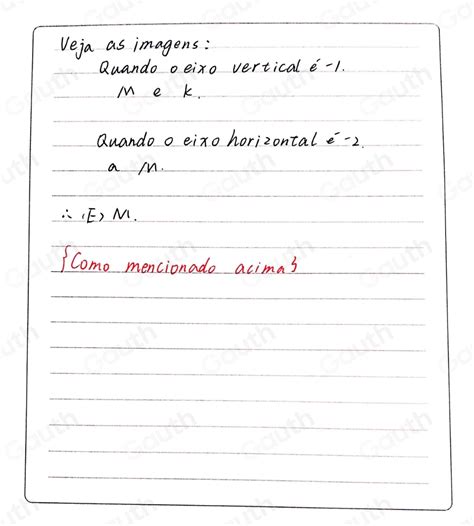 Veja as imagens:
Quando o eixo vertical é -1.
M e k.
Quando o eixo horizontal é -2.
a M.
∴ (E) M.
{Como mencionado acima}